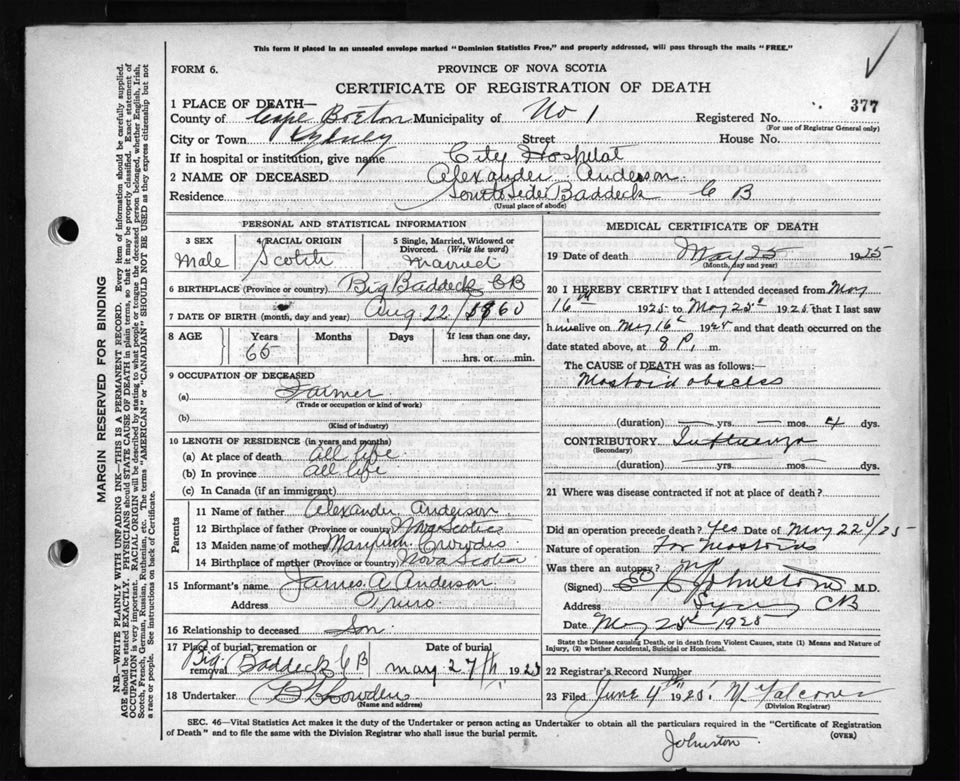 This form if placed in an unsealed envelope marked "Dominion Statistics Free," and properly addressed, will pass through the mails "FREE."
FORM 6.
PROVINCE OF NOVA SCOTIA
CERTIFICATE OF REGISTRATION OF DEATH
377
1 PLACE OF DEATH—
County of Cape Breton Municipality of No 1 Registered No.
(For use of Registrar General only)
City or Town Sydney Street House No.
If in hospital or institution, give name City Hospital
2 NAME OF DECEASED Alexander Anderson
Residence South Side Baddeck C B
(Usual place of abode)
PERSONAL AND STATISTICAL INFORMATION
3 SEX Male
4 RACIAL ORIGIN Scotch
5 Single, Married, Widowed or Divorced. (Write the word) Married
6 BIRTHPLACE (Province or country) Big Baddeck CB
7 DATE OF BIRTH (month, day and year) Aug 22/1860
8 AGE Years 65 Months Days If less than one day, hrs. or min.
9 OCCUPATION OF DECEASED
(a) Farmer
(Trade or occupation or kind of work)
(b)
(Kind of industry)
10 LENGTH OF RESIDENCE (in years and months)
(a) At place of death all life
(b) In province all life
(c) In Canada (if an immigrant)
Parents
11 Name of father Alexander Anderson
12 Birthplace of father (Province or country) Nova Scotia
13 Maiden name of mother Crowdis
14 Birthplace of mother (Province or country) Nova Scotia
15 Informant's name James A Anderson
Address Truro.
16 Relationship to deceased Son
17 Place of burial, cremation or removal Big Baddeck C B Date of burial May 27th, 1925
18 Undertaker
(Name and address)
MEDICAL CERTIFICATE OF DEATH
19 Date of death May 25 1925
(Month, day and year)
20 I HEREBY CERTIFY that I attended deceased from May
16th 1925 to May 25th 1925 that I last saw
him alive on May 16 and that death occurred on the
date stated above, at 8 P. m.
The CAUSE of DEATH was as follows:—
Mastoid abscess
(duration) yrs. mos. 4 dys.
CONTRIBUTORY Influenza
(Secondary)
(duration) yrs. mos. dys.
21 Where was disease contracted if not at place of death?
Did an operation precede death? Yes Date of May 22/25
Nature of operation For Mastoids
Was there an autopsy? No
(Signed) Johnstone M.D.
Address Sydney CB
Date May 25 1925
State the Disease causing Death, or in death from Violent Causes, state (1) Means and Nature of Injury, (2) whether Accidental, Suicidal or Homicidal.
22 Registrar's Record Number
23 Filed June 4th 1925
(Division Registrar)
SEC. 46—Vital Statistics Act makes it the duty of the Undertaker or person acting as Undertaker to obtain all the particulars required in the "Certificate of Registration
of Death" and to file the same with the Division Registrar who shall issue the burial permit.
(OVER)
Johnston.
MARGIN RESERVED FOR BINDING
N.B.—WRITE PLAINLY WITH UNFADING INK—THIS IS A PERMANENT RECORD. Every item of information should be carefully supplied.
AGE should be stated EXACTLY. PHYSICIANS should STATE CAUSE OF DEATH in plain terms, so that it may be properly classified. Exact statement of
OCCUPATION is very important. RACIAL ORIGIN will be described by stating to what people or tongue the deceased person belonged, whether English, Irish,
Scotch, French, German, Russian, Ruthenian, etc. The terms "AMERICAN" or "CANADIAN" SHOULD NOT BE USED as they express citizenship but not
a race or people. See instructions on back of Certificate.